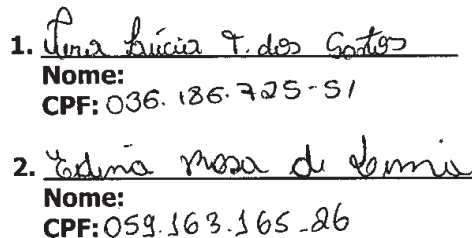 1. Vera Lúcia T. dos Santos
Nome:
CPF: 036.186.725-51
2. Edina Rosa de
Nome:
CPF: 059.163.165-26